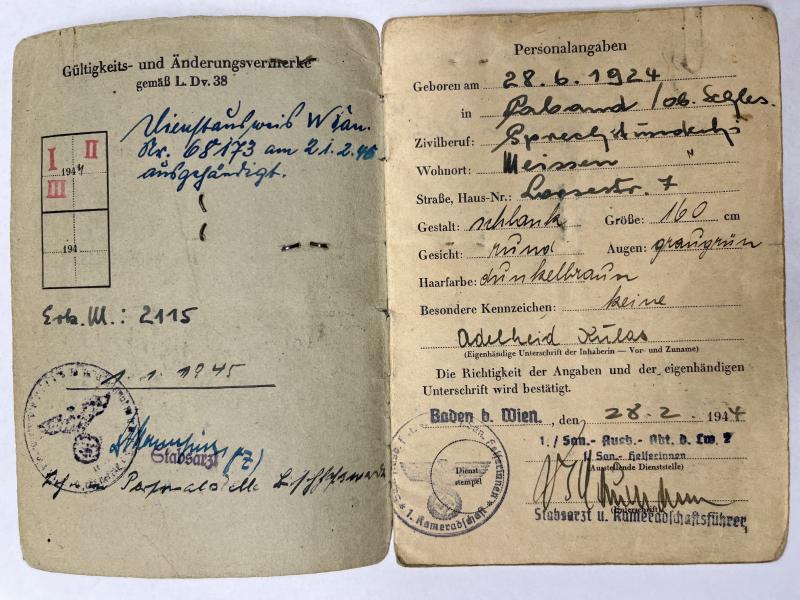 Gültigkeits- und Änderungsvermerke
gemäß L. Dv. 38
Dienstausweis
Nr. 68173 am 21.2.45
ausgehändigt.
I II
1944
III
194
Erk. M.: 2115
1.1.1945
Stabsarzt
Personalstelle
Personalangaben
Geboren am 28.6.1924
in Laband / ob. Schles.
Zivilberuf:
Wohnort: Meissen
Straße, Haus-Nr.: Loosestr. 7
Gestalt: schlank Größe: 160 cm
Gesicht: rund Augen: graugrün
Haarfarbe: dunkelbraun
Besondere Kennzeichen: keine
Adelheid Kulas
(Eigenhändige Unterschrift der Inhaberin — Vor- und Zuname)
Die Richtigkeit der Angaben und der eigenhändigen
Unterschrift wird bestätigt.
Baden b. Wien, den 28.2. 1944
1./San.- Ausb.- Abt. d. Lw. 2
San.- Helferinnen
(Ausstellende Dienststelle)
Dienst
stempel
San. Helferinnen
1. Kameradschaft
(Unterschrift)
Stabsarzt u. Kameradschaftsführer